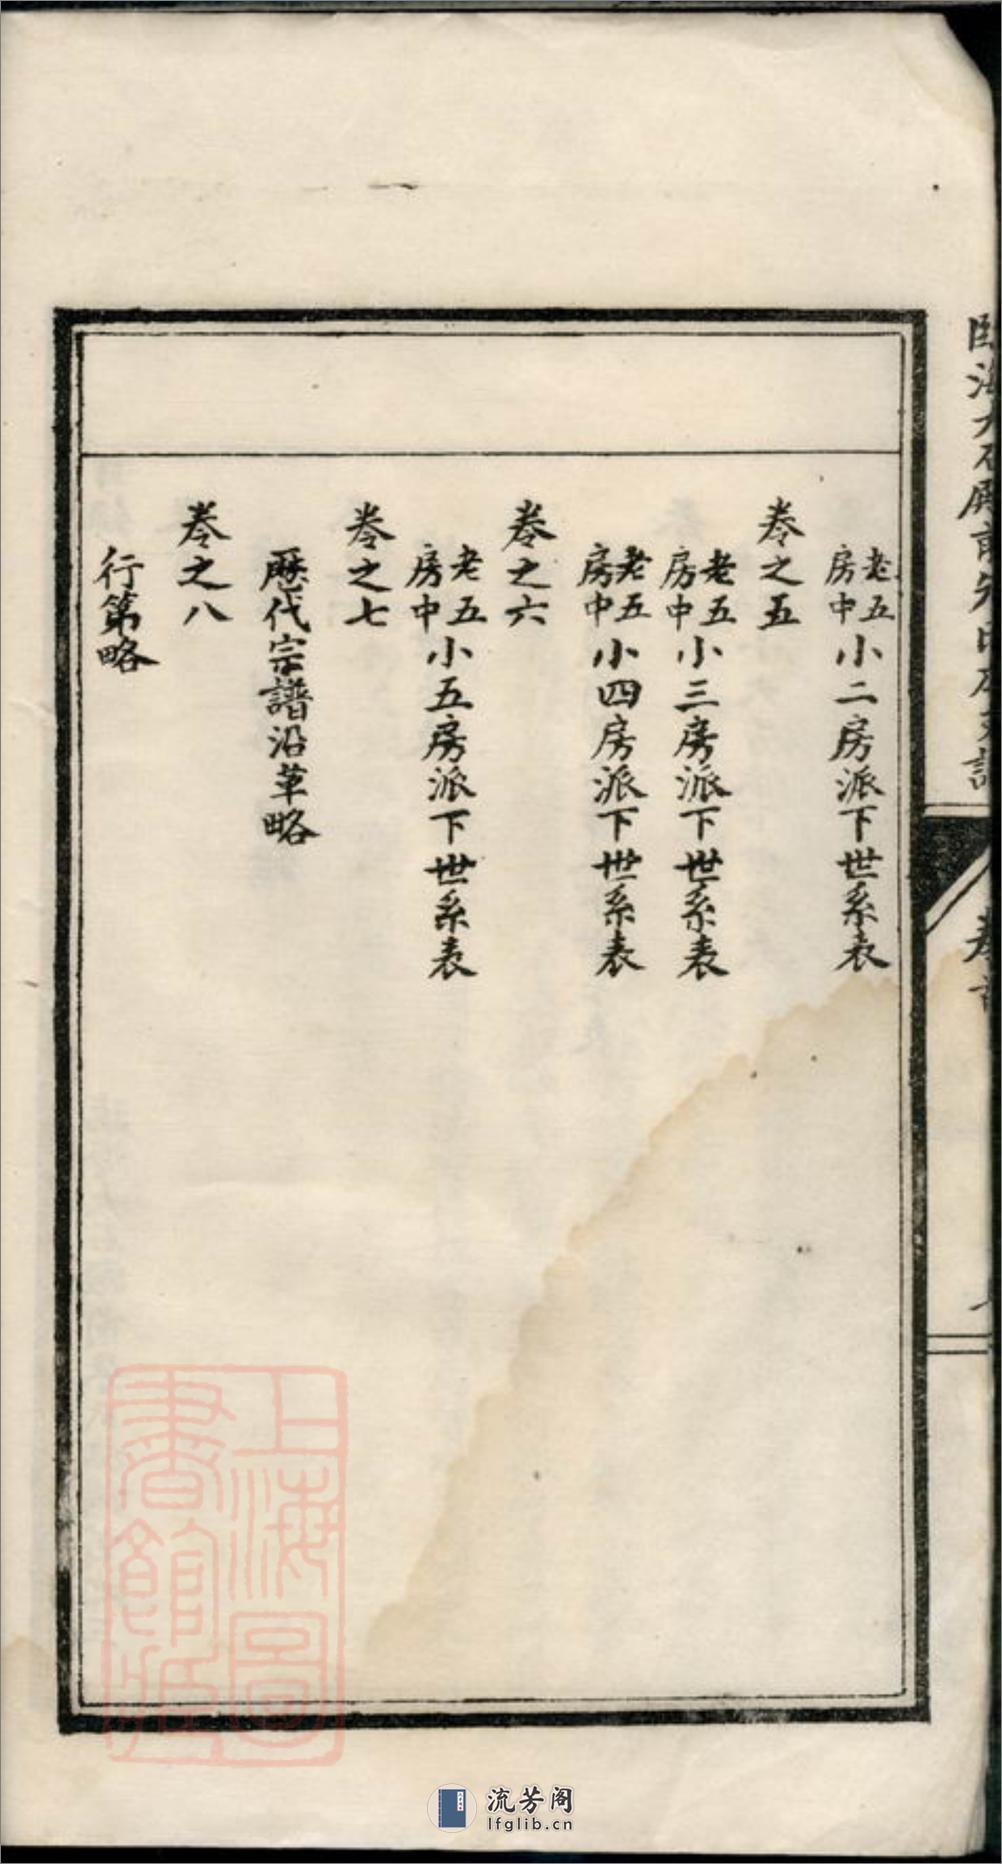 老五房中小二房派下世系表
卷之五
老五房中小三房派下世系表
老五房中小四房派下世系表
卷之六
老五房中小五房派下世系表
卷之七
歷代宗譜沿革略
卷之八
行第略
上海圖書館藏
流芳阁
lfglib.cn